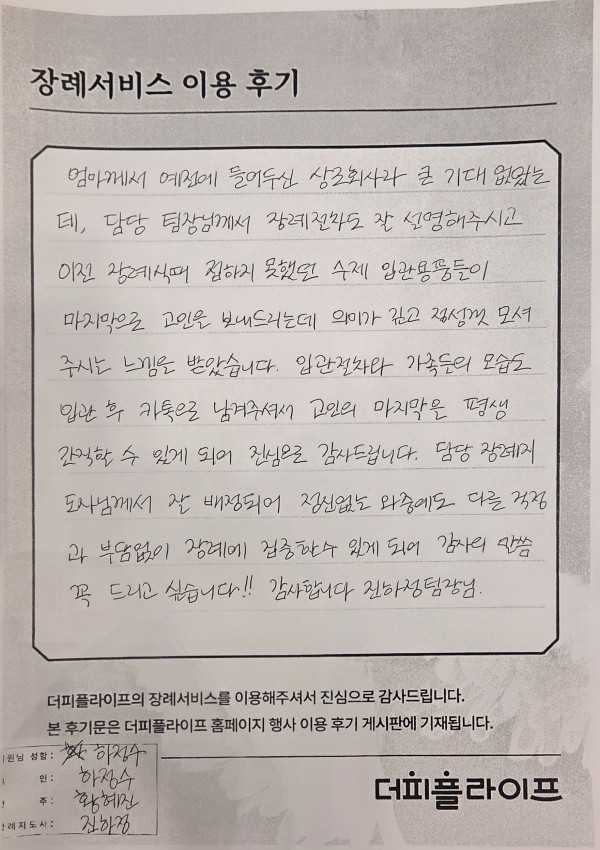 장례서비스 이용 후기
엄마께서 예전에 들어두신 상조회사라 큰 기대 없었는
데, 담당 팀장님께서 장례절차도 잘 설명해주시고
이전 장례식때 접하지 못했던 수제 입관용품들이
마지막으로 고인을 보내드리는데 의미가 깊고 정성껏 모셔
주시는 느낌을 받았습니다. 입관절차와 가족들의 모습도
입관 후 카톡으로 남겨주셔서 고인의 마지막을 평생
간직할 수 있게 되어 진심으로 감사드립니다. 담당 장례지
도사님께서 잘 배정되어 정신없는 와중에도 다른 걱정
과 부담없이 장례에 집중할수 있게 되어 감사의 말씀
꼭 드리고 싶습니다!! 감사합니다 진하정팀장님.
더피플라이프의 장례서비스를 이용해주셔서 진심으로 감사드립니다.
본 후기문은 더피플라이프 홈페이지 행사 이용 후기 게시판에 기재됩니다.
원님 성함: 하정수
인: 하정수
주: 황혜진
례지도사: 진하정
더피플라이프